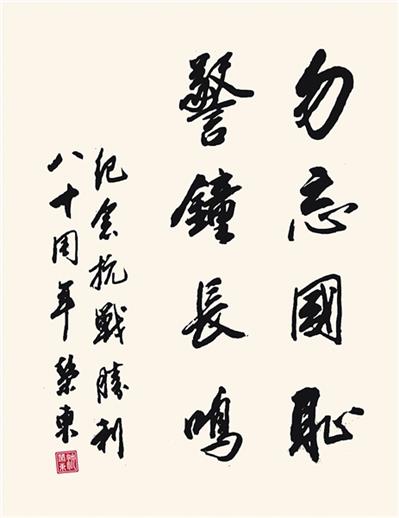 勿忘國恥
警鐘長鳴
紀念抗戰勝利
八十周年榮東